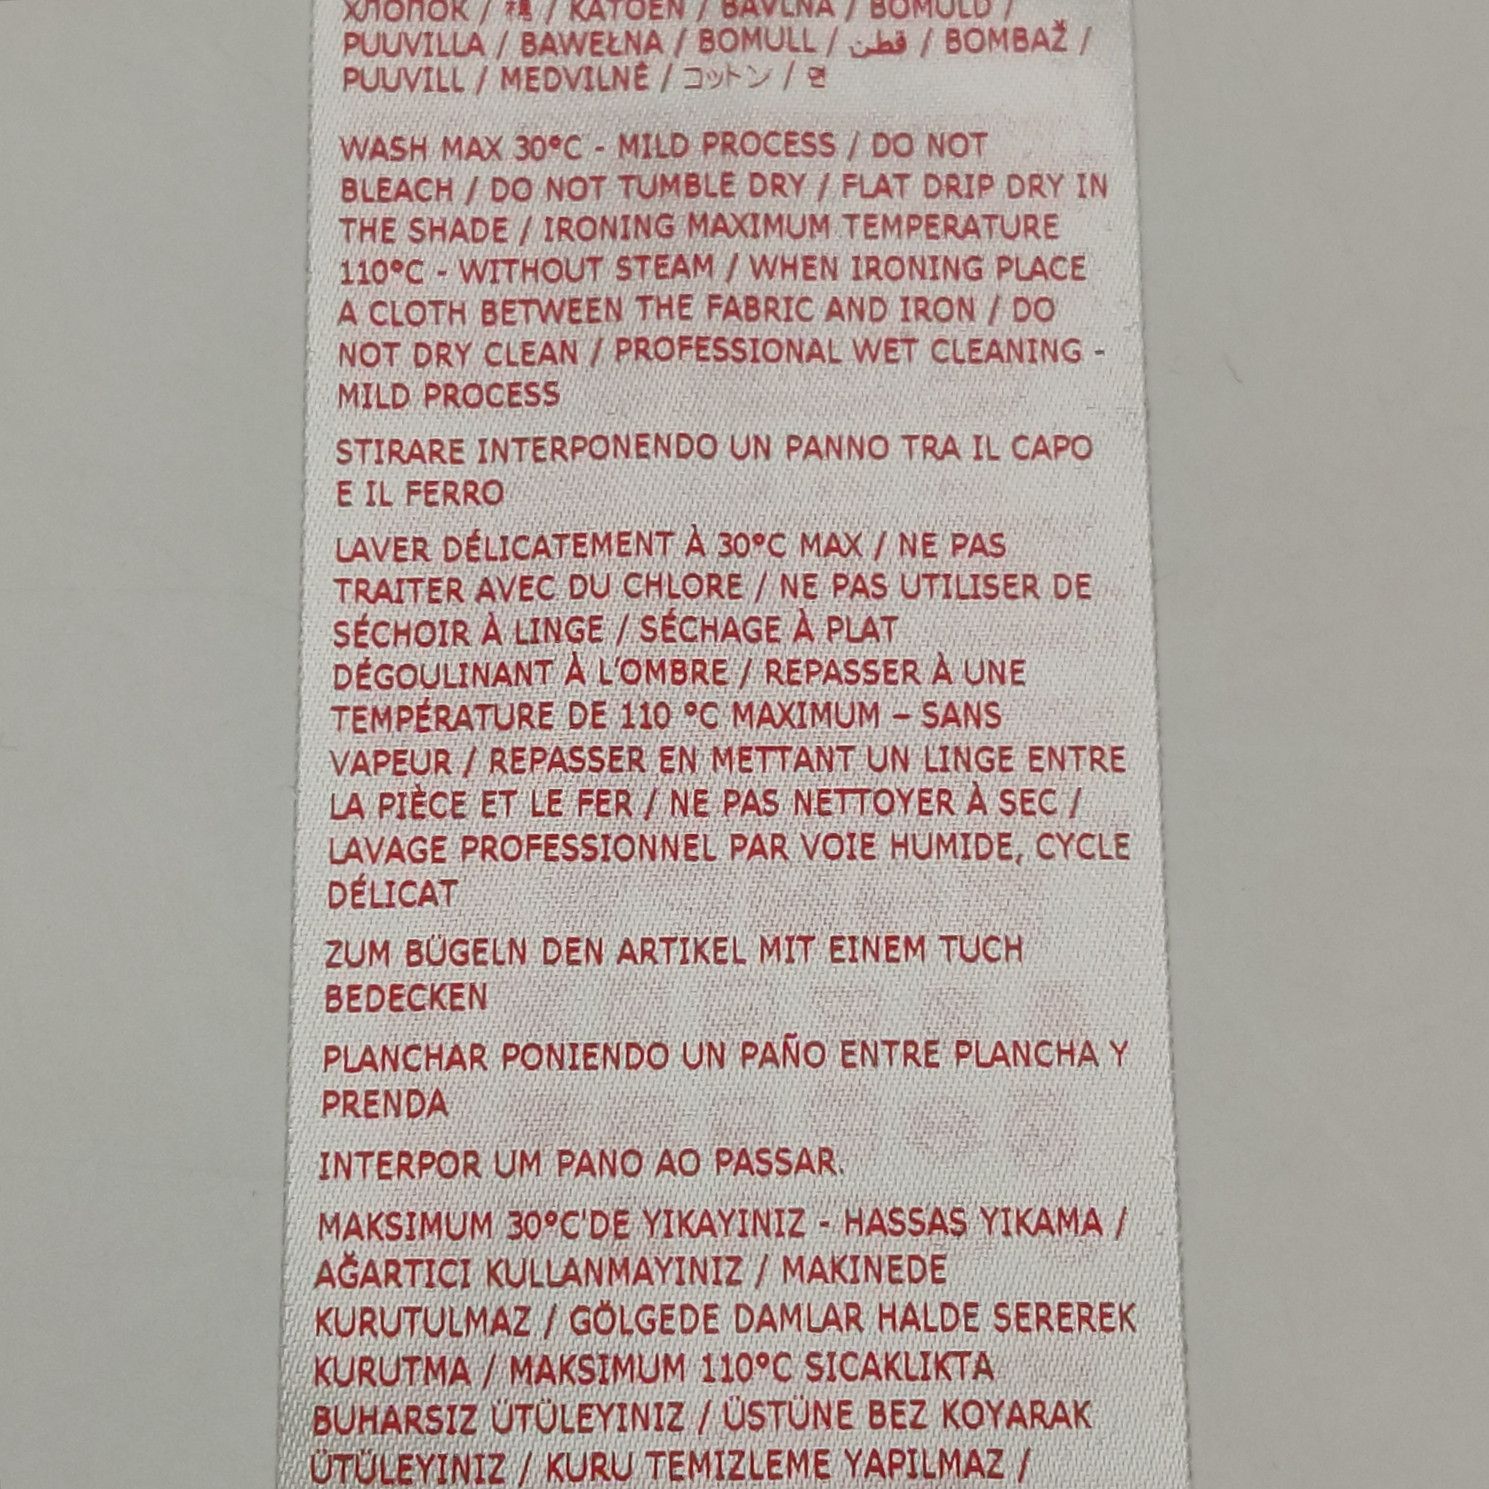 ХЛОПОК / 棉 / KATOEN / BAVLNA / BOMULD /
PUUVILLA / BAWEŁNA / BOMULL / قطن / BOMBAŽ /
PUUVILL / MEDVILNĖ / コットン / 면
WASH MAX 30°C - MILD PROCESS / DO NOT
BLEACH / DO NOT TUMBLE DRY / FLAT DRIP DRY IN
THE SHADE / IRONING MAXIMUM TEMPERATURE
110°C - WITHOUT STEAM / WHEN IRONING PLACE
A CLOTH BETWEEN THE FABRIC AND IRON / DO
NOT DRY CLEAN / PROFESSIONAL WET CLEANING -
MILD PROCESS
STIRARE INTERPONENDO UN PANNO TRA IL CAPO
E IL FERRO
LAVER DÉLICATEMENT À 30°C MAX / NE PAS
TRAITER AVEC DU CHLORE / NE PAS UTILISER DE
SÉCHOIR À LINGE / SÉCHAGE À PLAT
DÉGOULINANT À L'OMBRE / REPASSER À UNE
TEMPÉRATURE DE 110 °C MAXIMUM – SANS
VAPEUR / REPASSER EN METTANT UN LINGE ENTRE
LA PIÈCE ET LE FER / NE PAS NETTOYER À SEC /
LAVAGE PROFESSIONNEL PAR VOIE HUMIDE, CYCLE
DÉLICAT
ZUM BÜGELN DEN ARTIKEL MIT EINEM TUCH
BEDECKEN
PLANCHAR PONIENDO UN PAÑO ENTRE PLANCHA Y
PRENDA
INTERPOR UM PANO AO PASSAR.
MAKSIMUM 30°C'DE YIKAYINIZ - HASSAS YIKAMA /
AĞARTICI KULLANMAYINIZ / MAKINEDE
KURUTULMAZ / GÖLGEDE DAMLAR HALDE SEREREK
KURUTMA / MAKSIMUM 110°C SICAKLIKTA
BUHARSIZ ÜTÜLEYINIZ / ÜSTÜNE BEZ KOYARAK
ÜTÜLEYINIZ / KURU TEMIZLEME YAPILMAZ /